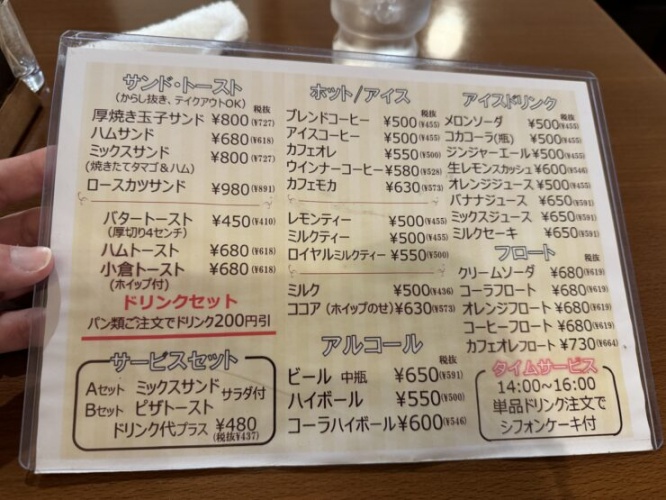 サンド・トースト
(からし抜き、テイクアウトOK)
税抜
厚焼き玉子サンド ¥800(¥727)
ハムサンド ¥680(¥618)
ミックスサンド ¥800(¥727)
(焼きたてタマゴ&ハム)
ロースカツサンド ¥980(¥891)
バタートースト ¥450(¥410)
(厚切り4センチ)
ハムトースト ¥680(¥618)
小倉トースト ¥680(¥618)
(ホイップ付)
ドリンクセット
パン類ご注文でドリンク200円引
サービスセット
Aセット ミックスサンド サラダ付
Bセット ピザトースト
ドリンク代プラス ¥480
(税抜¥437)
ホット/アイス
税抜
ブレンドコーヒー ¥500(¥455)
アイスコーヒー ¥500(¥455)
カフェオレ ¥550(¥500)
ウインナーコーヒー ¥580(¥528)
カフェモカ ¥630(¥573)
レモンティー ¥500(¥455)
ミルクティー ¥500(¥455)
ロイヤルミルクティー ¥550(¥500)
ミルク ¥500(¥436)
ココア (ホイップのせ) ¥630(¥573)
アルコール
税抜
ビール 中瓶 ¥650(¥591)
ハイボール ¥550(¥500)
コーラハイボール ¥600(¥546)
アイスドリンク
税抜
メロンソーダ ¥500(¥455)
コカコーラ(瓶) ¥500(¥455)
ジンジャーエール ¥500(¥455)
生レモンスカッシュ ¥600(¥546)
オレンジジュース ¥500(¥455)
バナナジュース ¥650(¥591)
ミックスジュース ¥650(¥591)
ミルクセーキ ¥650(¥591)
フロート
税抜
クリームソーダ ¥680(¥619)
コーラフロート ¥680(¥619)
オレンジフロート ¥680(¥619)
コーヒーフロート ¥680(¥619)
カフェオレフロート ¥730(¥664)
タイムサービス
14:00~16:00
単品ドリンク注文で
シフォンケーキ付